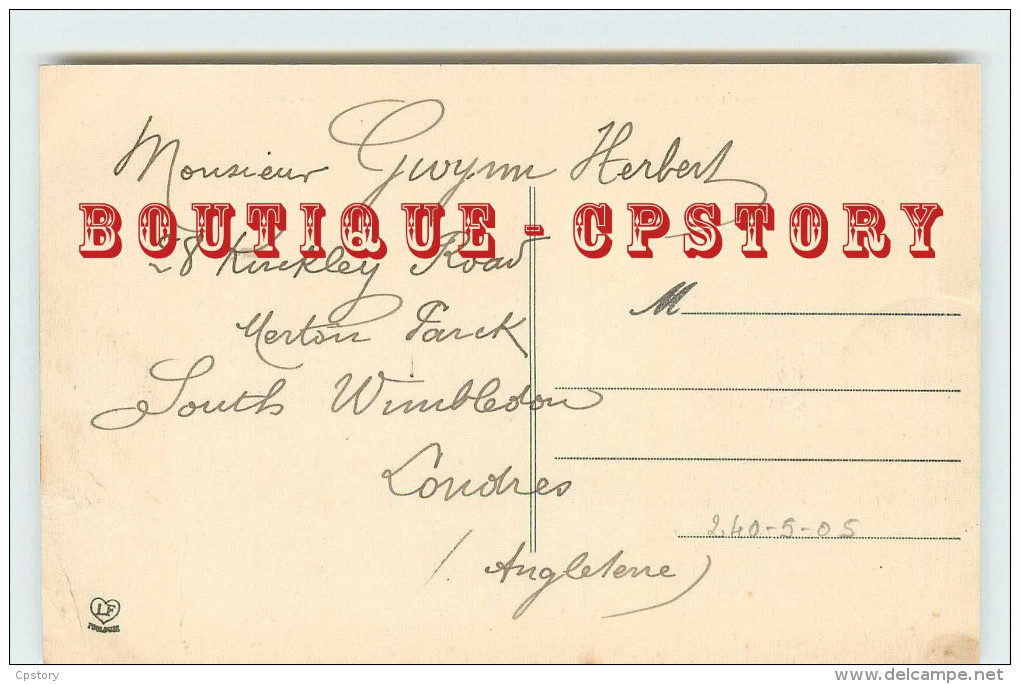 Monsieur Gwynn Herbert
BOUTIQUE - CPSTORY
28 Kirkley Road
M
Merton Parck
South Wimbledon
Londres
2,40-5-05
(Angleterre)
LF
TOULOUSE
Cpstory
delcampe.net